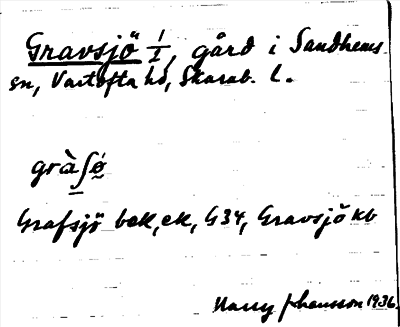 Gravsjö 1/1, gård i Sandhems
sn, Vartofta hd, Skarab. l.
gràʃø̀
Grafsjö bek, ek, G34, Gravsjö kb
Harry Johansson 1936.